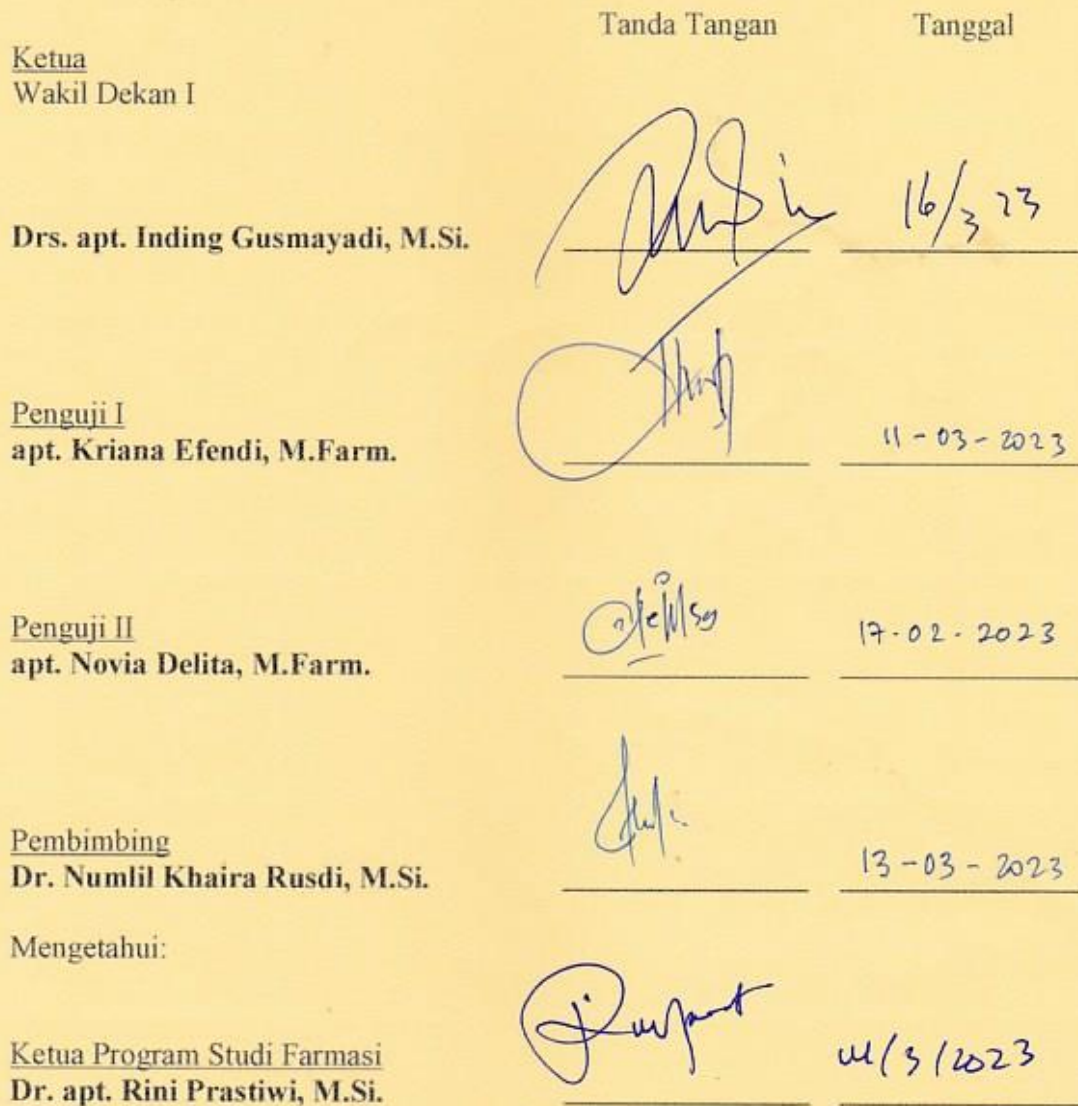 Tanda Tangan Tanggal
Ketua
Wakil Dekan I
Drs. apt. Inding Gusmayadi, M.Si. 16/3 23
Penguji I
apt. Kriana Efendi, M.Farm. 11-03-2023
Penguji II
apt. Novia Delita, M.Farm. 17.02.2023
Pembimbing
Dr. Numlil Khaira Rusdi, M.Si. 13-03-2023
Mengetahui:
Ketua Program Studi Farmasi
Dr. apt. Rini Prastiwi, M.Si. /3/2023